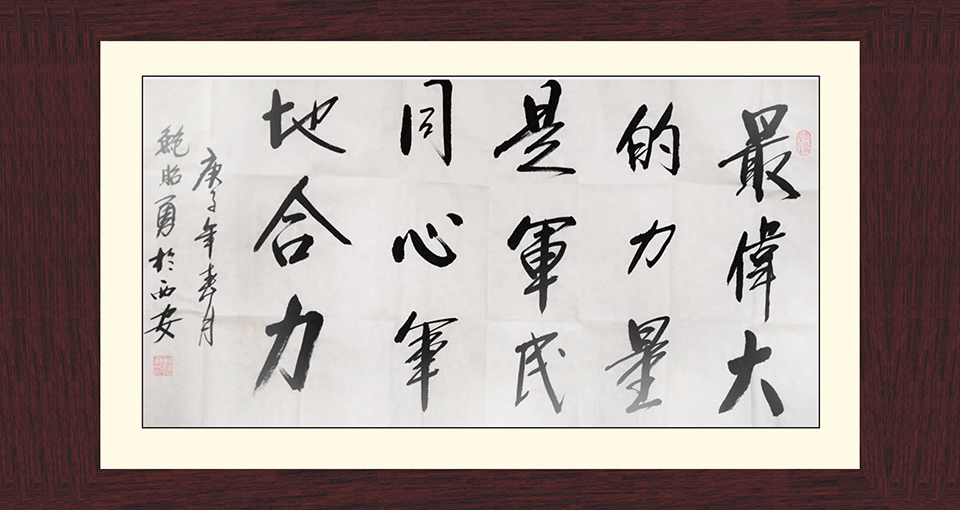 最偉大
的力量
是軍民
同心軍
地合力
庚子年春月
鮑昭勇於西安